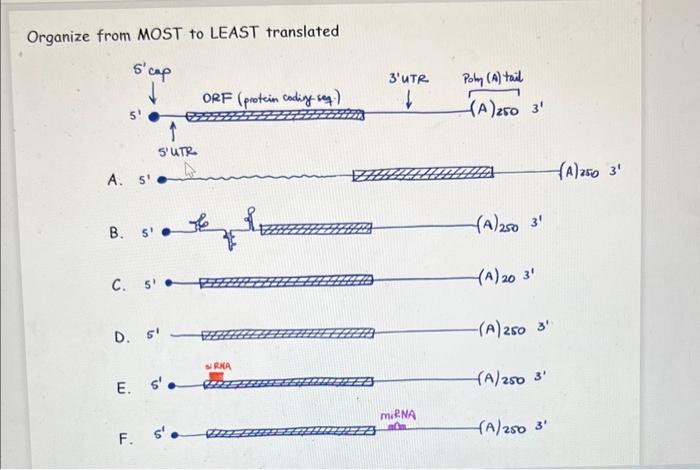 Organize from MOST to LEAST translated
5'cap
3'UTR
Poly (A) tail
ORF (protein coding seq.)
5'
(A)250 3'
5'UTR
A. 5'
(A)250 3'
B. 5'
(A)250 3'
C. 5'
(A)20 3'
D. 5'
(A)250 3'
siRNA
E. 5'
(A)250 3'
miRNA
F. 5'
(A)250 3'